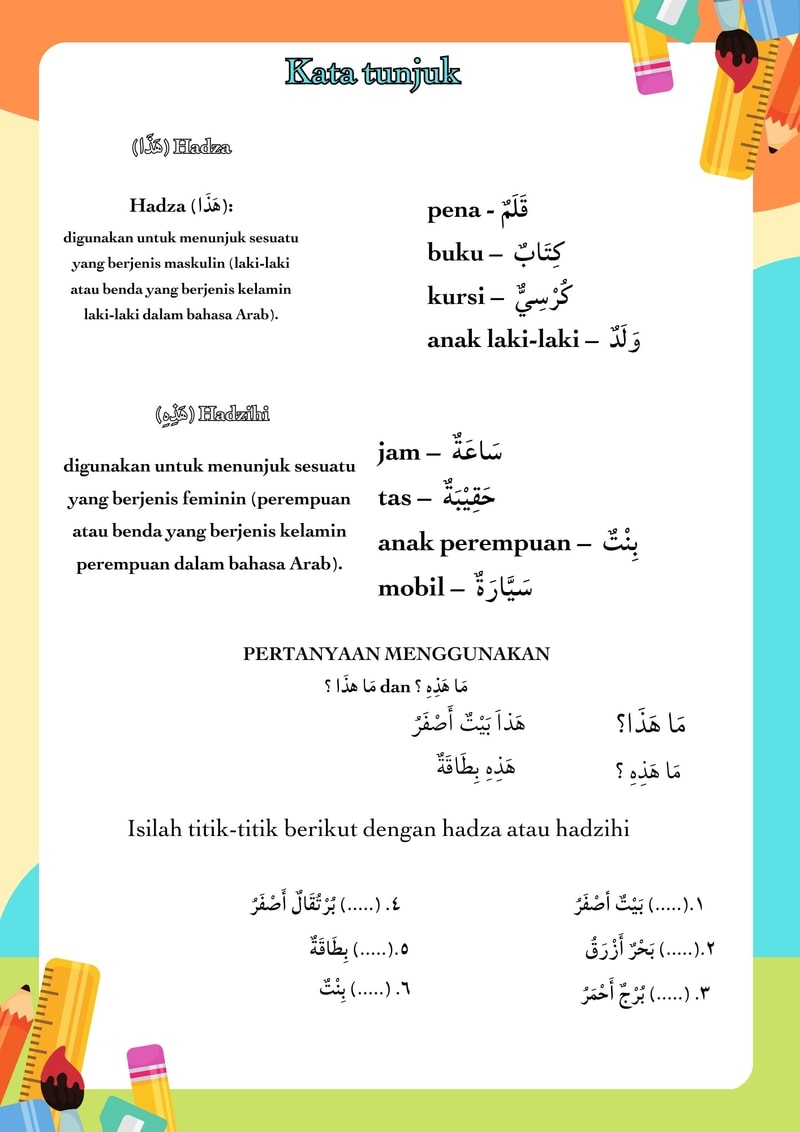 Kata tunjuk
(هَذَا) Hadza
Hadza (هَذَا):
digunakan untuk menunjuk sesuatu
yang berjenis maskulin (laki-laki
atau benda yang berjenis kelamin
laki-laki dalam bahasa Arab).
pena - قَلَمٌ
buku – كِتَابٌ
kursi – كُرْسِيٌّ
anak laki-laki – وَلَدٌ
(هَذِهِ) Hadzihi
digunakan untuk menunjuk sesuatu
yang berjenis feminin (perempuan
atau benda yang berjenis kelamin
perempuan dalam bahasa Arab).
jam – سَاعَةٌ
tas – حَقِيْبَةٌ
anak perempuan – بِنْتٌ
mobil – سَيَّارَةٌ
PERTANYAAN MENGGUNAKAN
مَا هذَا ؟ dan مَا هَذِهِ ؟
مَا هَذَا؟ هَذاَ بَيْتٌ أَصْفَرُ
مَا هَذِهِ ؟ هَذِهِ بِطَاقَةٌ
Isilah titik-titik berikut dengan hadza atau hadzihi
١.(.....) بَيْتٌ أصْفَرُ
٢.(.....) بَحْرٌ أَزْرَقُ
٣. (.....) بُرْجٌ أَحْمَرُ
٤. (.....) بُرْتُقَالٌ أَصْفَرُ
٥.(.....) بِطَاقَةٌ
٦. (.....) بِنْتٌ